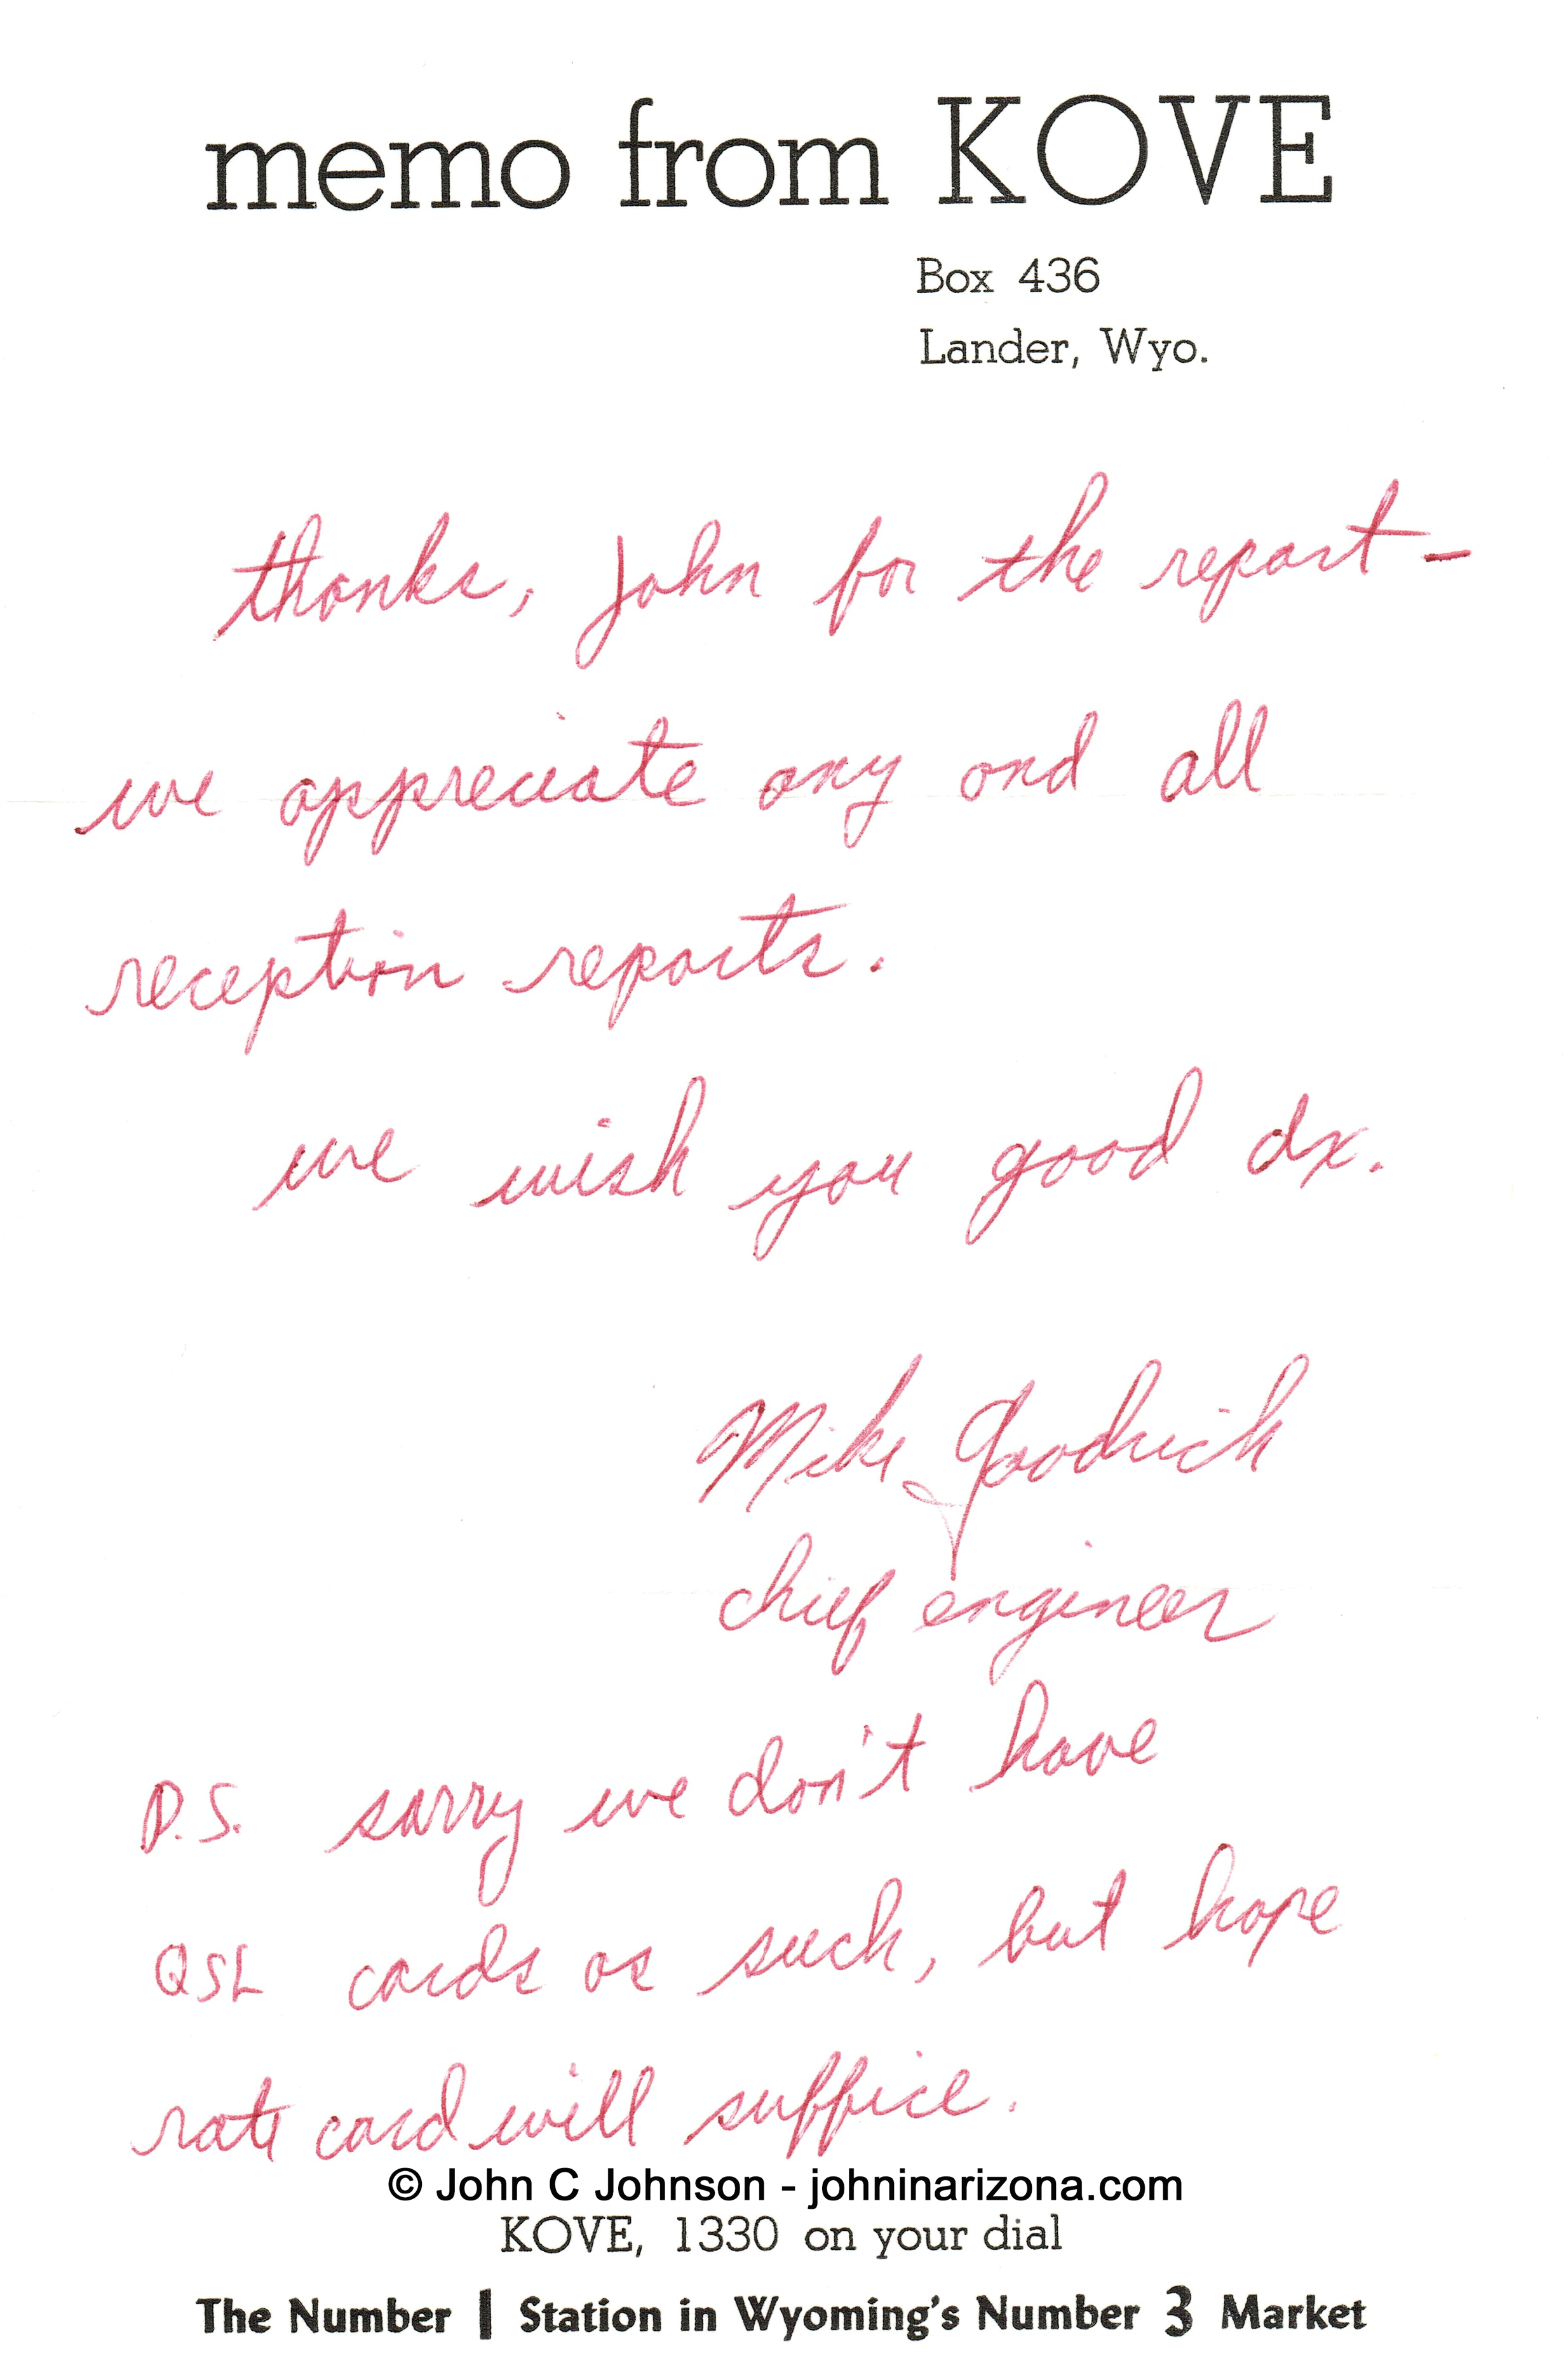 memo from KOVE
Box 436
Lander, Wyo.
thanks, John for the report -
we appreciate any and all
reception reports.
we wish you good dx.
Mike Goodrich
chief engineer
P.S. sorry we don't have
QSL cards as such, but hope
rate card will suffice.
© John C Johnson - johninarizona.com
KOVE, 1330 on your dial
The Number 1 Station in Wyoming's Number 3 Market